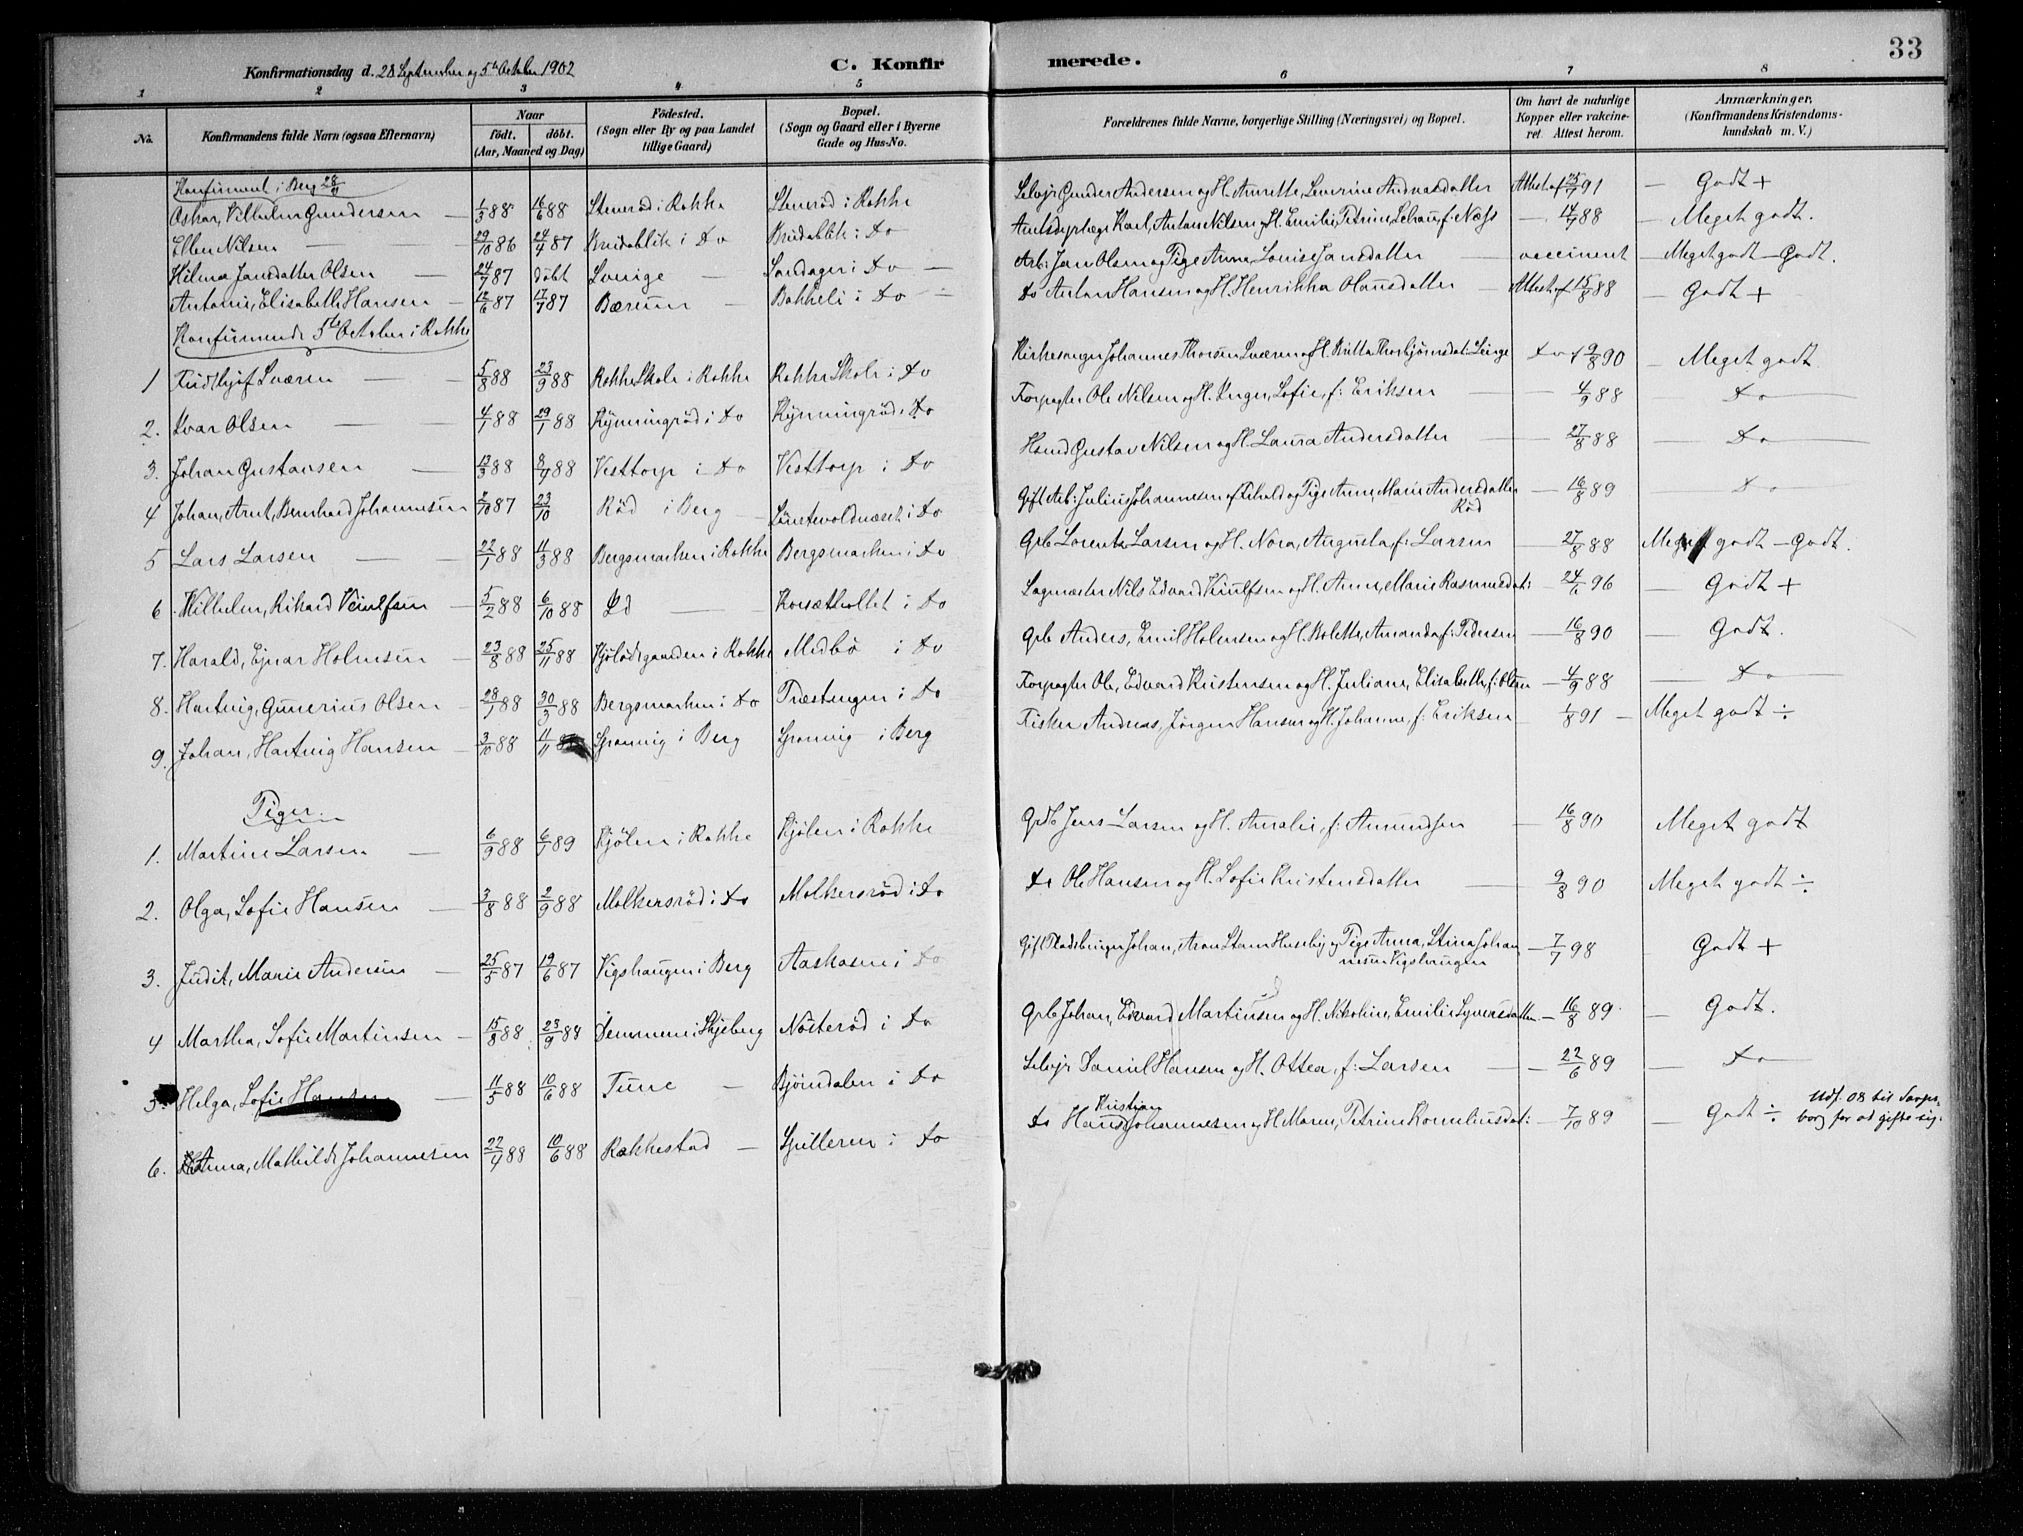 33
Konfirmationsdag d. 28 September og 5te October 1902
C. Konfirmerede.
1 2 3 4 5 6 7 8
No.
Konfirmandens fulde Navn (ogsaa Efternavn)
Naar født. døbt. (Aar, Maaned og Dag)
Fødested. (Sogn eller By og paa Landet tillige Gaard)
Bopæl. (Sogn og Gaard eller i Byerne Gade og Hus-No.
Forældrenes fulde Navne, borgerlige Stilling (Næringsvei) og Bopæl.
Om havt de naturlige Kopper eller vakcineret. Attest herom.
Anmærkninger. (Konfirmandens Kristendomskundskab m. V.)
Konfirmeret i Berg 28/9
Oskar, Vilhelm Gundersen — 1/3 88 16/6 88 Stenrød i Rokke Stenrød i Rokke Selvejr Gunder Andersen og H. Annette, Severine Andreasdatter Attest af 25/7 91 — Godt +
Ellen Nilsen — 29/10 86 24/4 87 Bredablik i Do Bredablik i Do Amtsdyrlæge Karl, Anton Nilsen og H. Emilie, Petrine, Schau f: Næss — 14/7 88 — Meget godt.
Hilma Jansdatter Olsen — 24/7 87 døbt Sverige — Sandager i Do — Arb: Jan Olsen og Pige Anna Louise Jansdatter — vaccineret — Meget godt — Godt.
Antonie, Elisabeth Hansen — 12/6 87 17/7 87 Bærum — Bakkeli i Do — Do Anton Hansen og H. Henrikka Olausdatter — Attest af 15/8 88 — Godt +
Konfirmerede 5te October i Rokke
1 Fridthjof Sværen — 5/8 88 23/9 88 Rokke Skole i Rokke Rokke Skole i Do Kirkesanger Johannes Thorsen Sværen og H. Britta Thorbjørnsdat: Linge Do af 9/8 90 — Meget godt
2. Ivar Olsen — 4/1 88 29/1 88 Rynningrød i Do Rynningrød i Do Forpagter Ole Nilsen og H. Inger, Sofie, f: Eriksen — 4/9 88 — Do —
3. Johan Gustavsen — 13/3 88 8/4 88 Vesttorp i Do Vesttorp i Do Hsmd Gustav Nilsen og H. Laura Andersdatter — 27/8 88 — Do —
4 Johan, Arnt, Bernhard Johannesen 2/10 87 23/10 Rød i Berg — Lønstevoldnæset i Do Gift Arb: Julius Johannesen af Idd og Pige Anne Marie Andersdatter Rød — 16/8 89 — Do —
5 Lars Larsen — 22/1 88 11/3 88 Bergsmarken i Rokke Bergsmarken i Do Grb Lorents Larsen og H. Nora, Augusta f: Larsen — 27/8 88 Meget godt — Godt.
6 Wilhelm, Rikard Keiulfsen — 5/2 88 6/10 88 Id — Korsæthollet i Do Sagmester Nils Edvard Keiulfsen og H. Anne, Marie Rasmusdat: — 24/6 96 — Godt +
7. Harald, Ejnar Holmsen — 23/8 88 25/11 88 Kjølødegaarden i Rokke Medbø i Do Grb Anders, Emil Holmsen og H. Bolette, Amanda f: Pedersen — 16/8 90 — Godt.
8. Hartvig, Gunerius Olsen — 28/1 88 30/3 88 Bergsmarken i Do Træstangen i Do Forpagter Ole, Edvard Kristensen og H. Juliane, Elisabeth, f: Olsen — 4/9 88 — Do —
9. Johan, Hartvig Hansen — 3/10 88 11/11 Sponvig i Berg Sponvig i Berg Fisker Andreas, Jørgen Hansen og H. Johanne, f: Eriksen — 1/8 91 — Meget godt ÷
Piger:
1. Martine Larsen — 6/9 88 6/1 89 Kjølen i Rokke Kjølen i Rokke Grb Jens Larsen og H. Amalie, f: Amundsen — 16/8 90 Meget godt
2. Olga, Sofie Hansen — 3/8 88 2/9 88 Molkersrød i Do Molkersrød i Do Do Ole Hansen og H. Sofie Kristensdatter — 9/8 90 Meget godt ÷
3. Judit, Marie Andersen — 25/5 87 19/6 87 Vigshaugen i Berg Aaskasen i Do Gift Johan, Aron Stam Huseby og Pige Anna, Stina Johannesen Vigshaugen — 7/7 98 Godt +
4 Martha, Sofie Martinsen — 15/8 88 23/9 88 i Skjeberg Nøsterød i Do Grb Johan, Edvard Martinsen og H. Nikoline, Emilie Syversdatter — 16/8 89 — Godt.
5. Helga, Sofie Hansen 11/5 88 10/6 88 Tune — Bjørndalen i Do Selvejr Daniel Hansen og H. Ottea, f: Larsen — 22/6 89 — Do —
6. Anna, Mathilde Johannesen 22/4 88 10/6 88 Rakkestad — Spilleren i Do Do Hans Kristian Johannesen og H. Maren, Petrine Korneliusdat: — 7/10 89 — Godt ÷ Udf. 08 til Sarpsborg for at gifte sig.